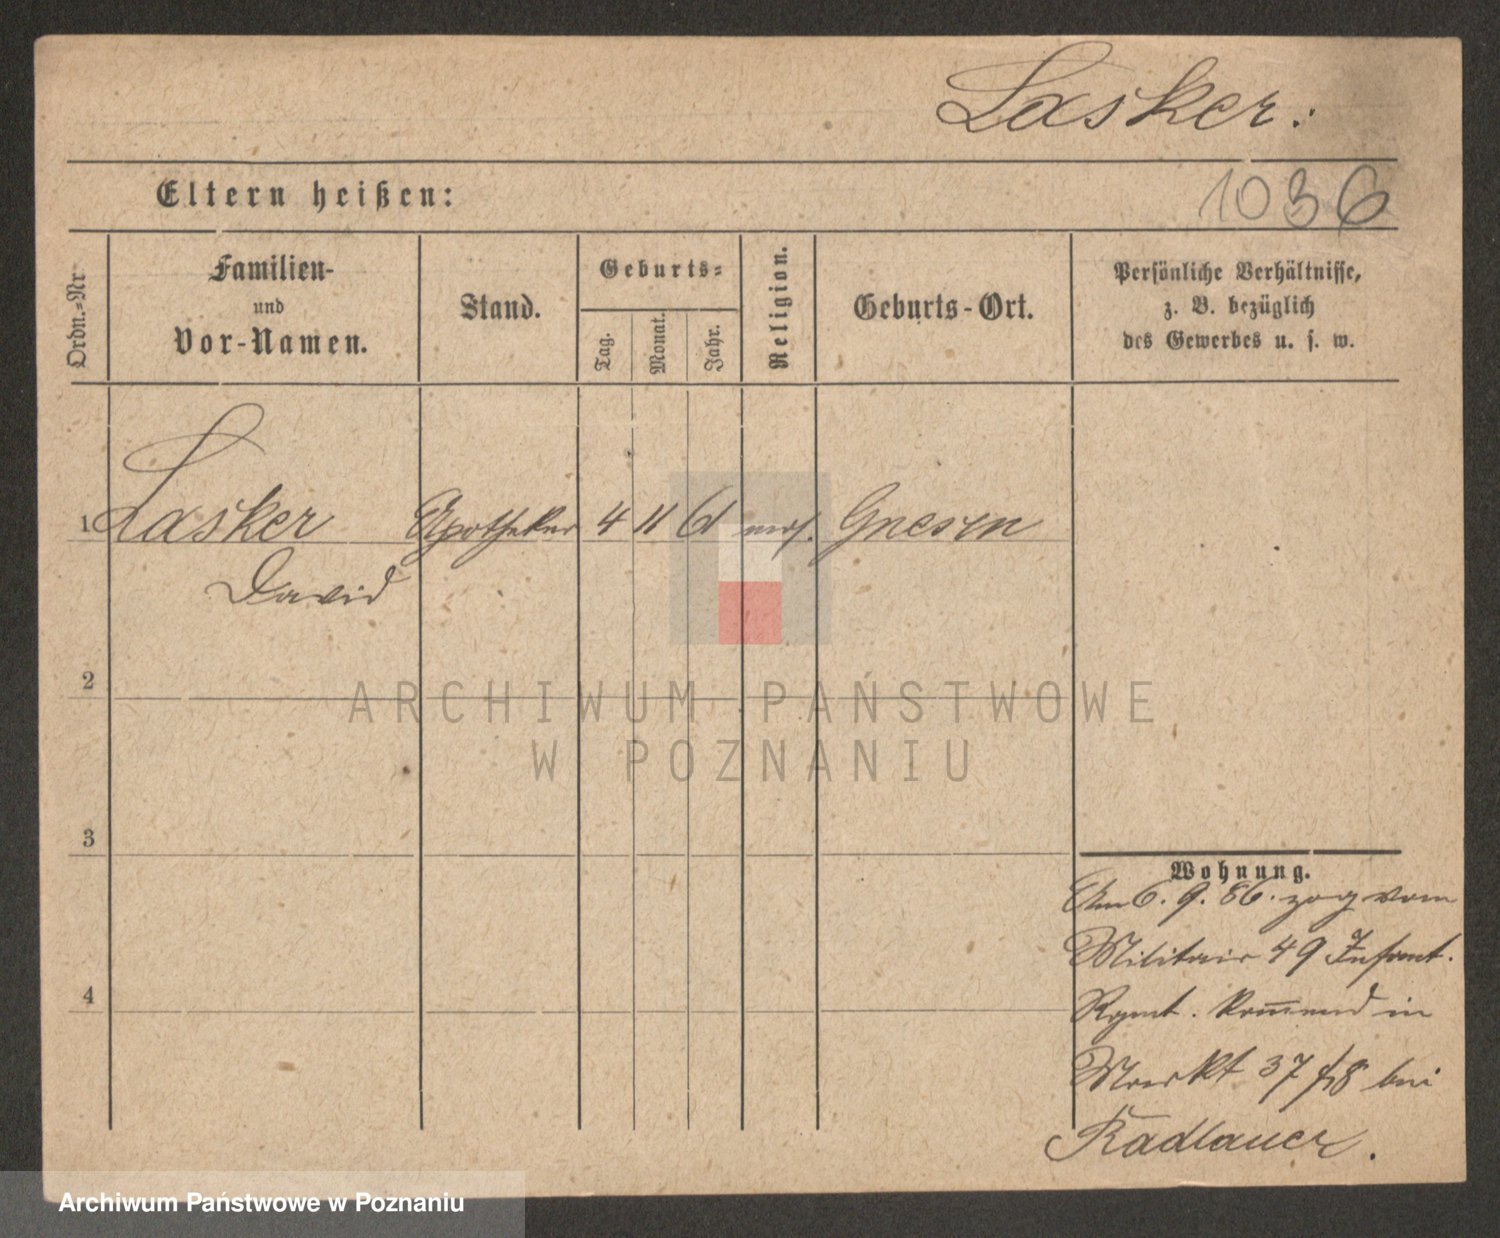 Lasker.
1036
Eltern heißen:
Ordn.-Nr
Familien-
und
Vor-Namen.
Stand.
Geburts-
Tag.
Monat.
Jahr.
Religion.
Geburts-Ort.
Persönliche Verhältnisse,
z. B. bezüglich
des Gewerbes u. s. w.
1 Lasker Apotheker 4 11 61 mos. Gnesen
David
2
ARCHIWUM PAŃSTWOWE
W POZNANIU
3
Wohnung.
Am 6. 9. 86. zog vom
Militair 49 Infant.
4
Rgmt. kom̅end in
Markt 37 bei
Radlauer.
Archiwum Państwowe w Poznaniu